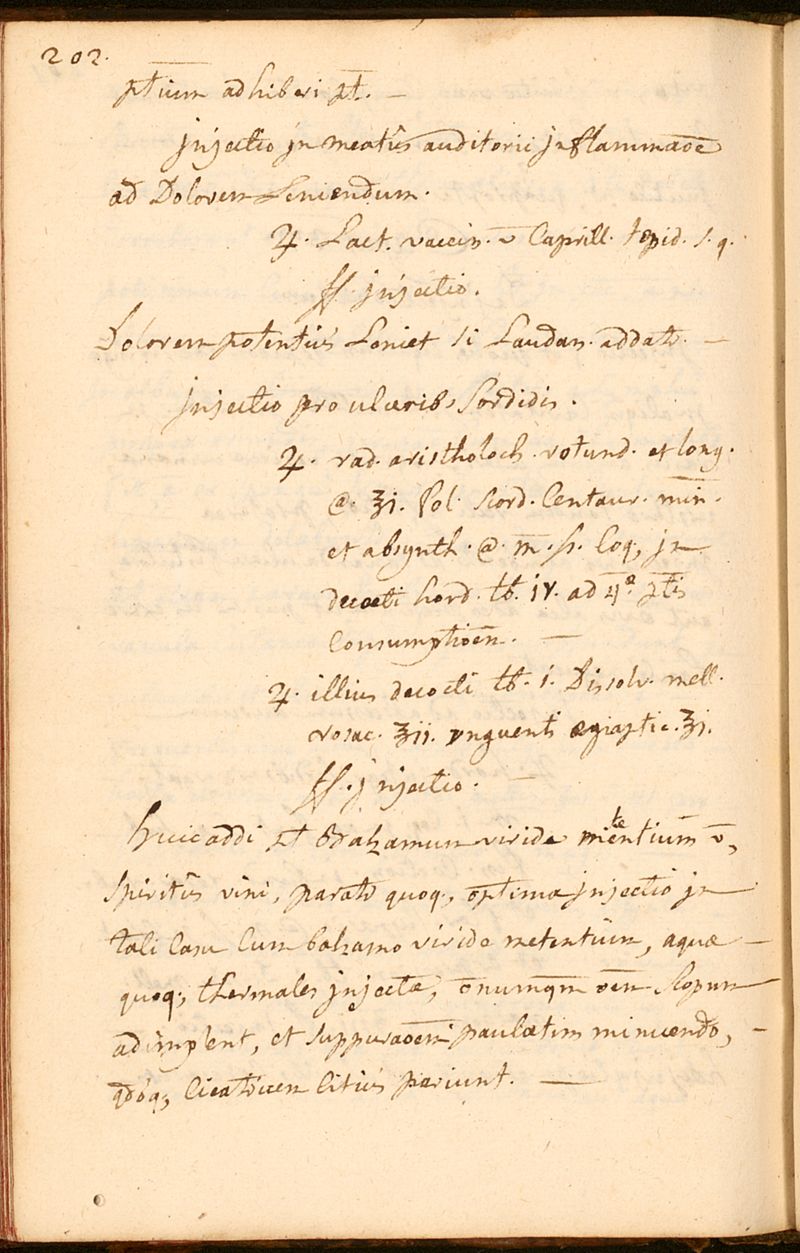 202.
ptium adhiberi pt. —
Injectio jn meatus auditorii jnflammaoe
ad Dolorem Leniendum.
♃. Lact. vaccin. v Caprill. tepid. s. q.
ff. jnjectio.
Dolorem potentius Leniet si Laudan. addatr. —
Injectio pro ulceribs Sordidis.
♃. rad. aristholoch. rotund. et long.
@. ℥j. fol. scord. Centaur. min.
et absynth. @. m. ſs. Coq; jn
decocti hord. tb. iv. ad 4ae ptis
Consumptioen. —
♃. illius decocti tb. 1. Dissolv. mell.
rosac. ℥ii. ynguenti ægiaptic. ℥j.
ff. jnjectio. —
huic addi pt Balzamum viride metentium v,
Spiritus vini, paratr quoq;, optima jnjectio jn
tali Casu Cum balzamo viride metentium, aquæ —
quoq; thermales jnjectæ, onumqm oem Scopum
adimplent, et Suppuraoem paulatim minuendo, —
qdoq; Cicatricem Citius pariunt. —